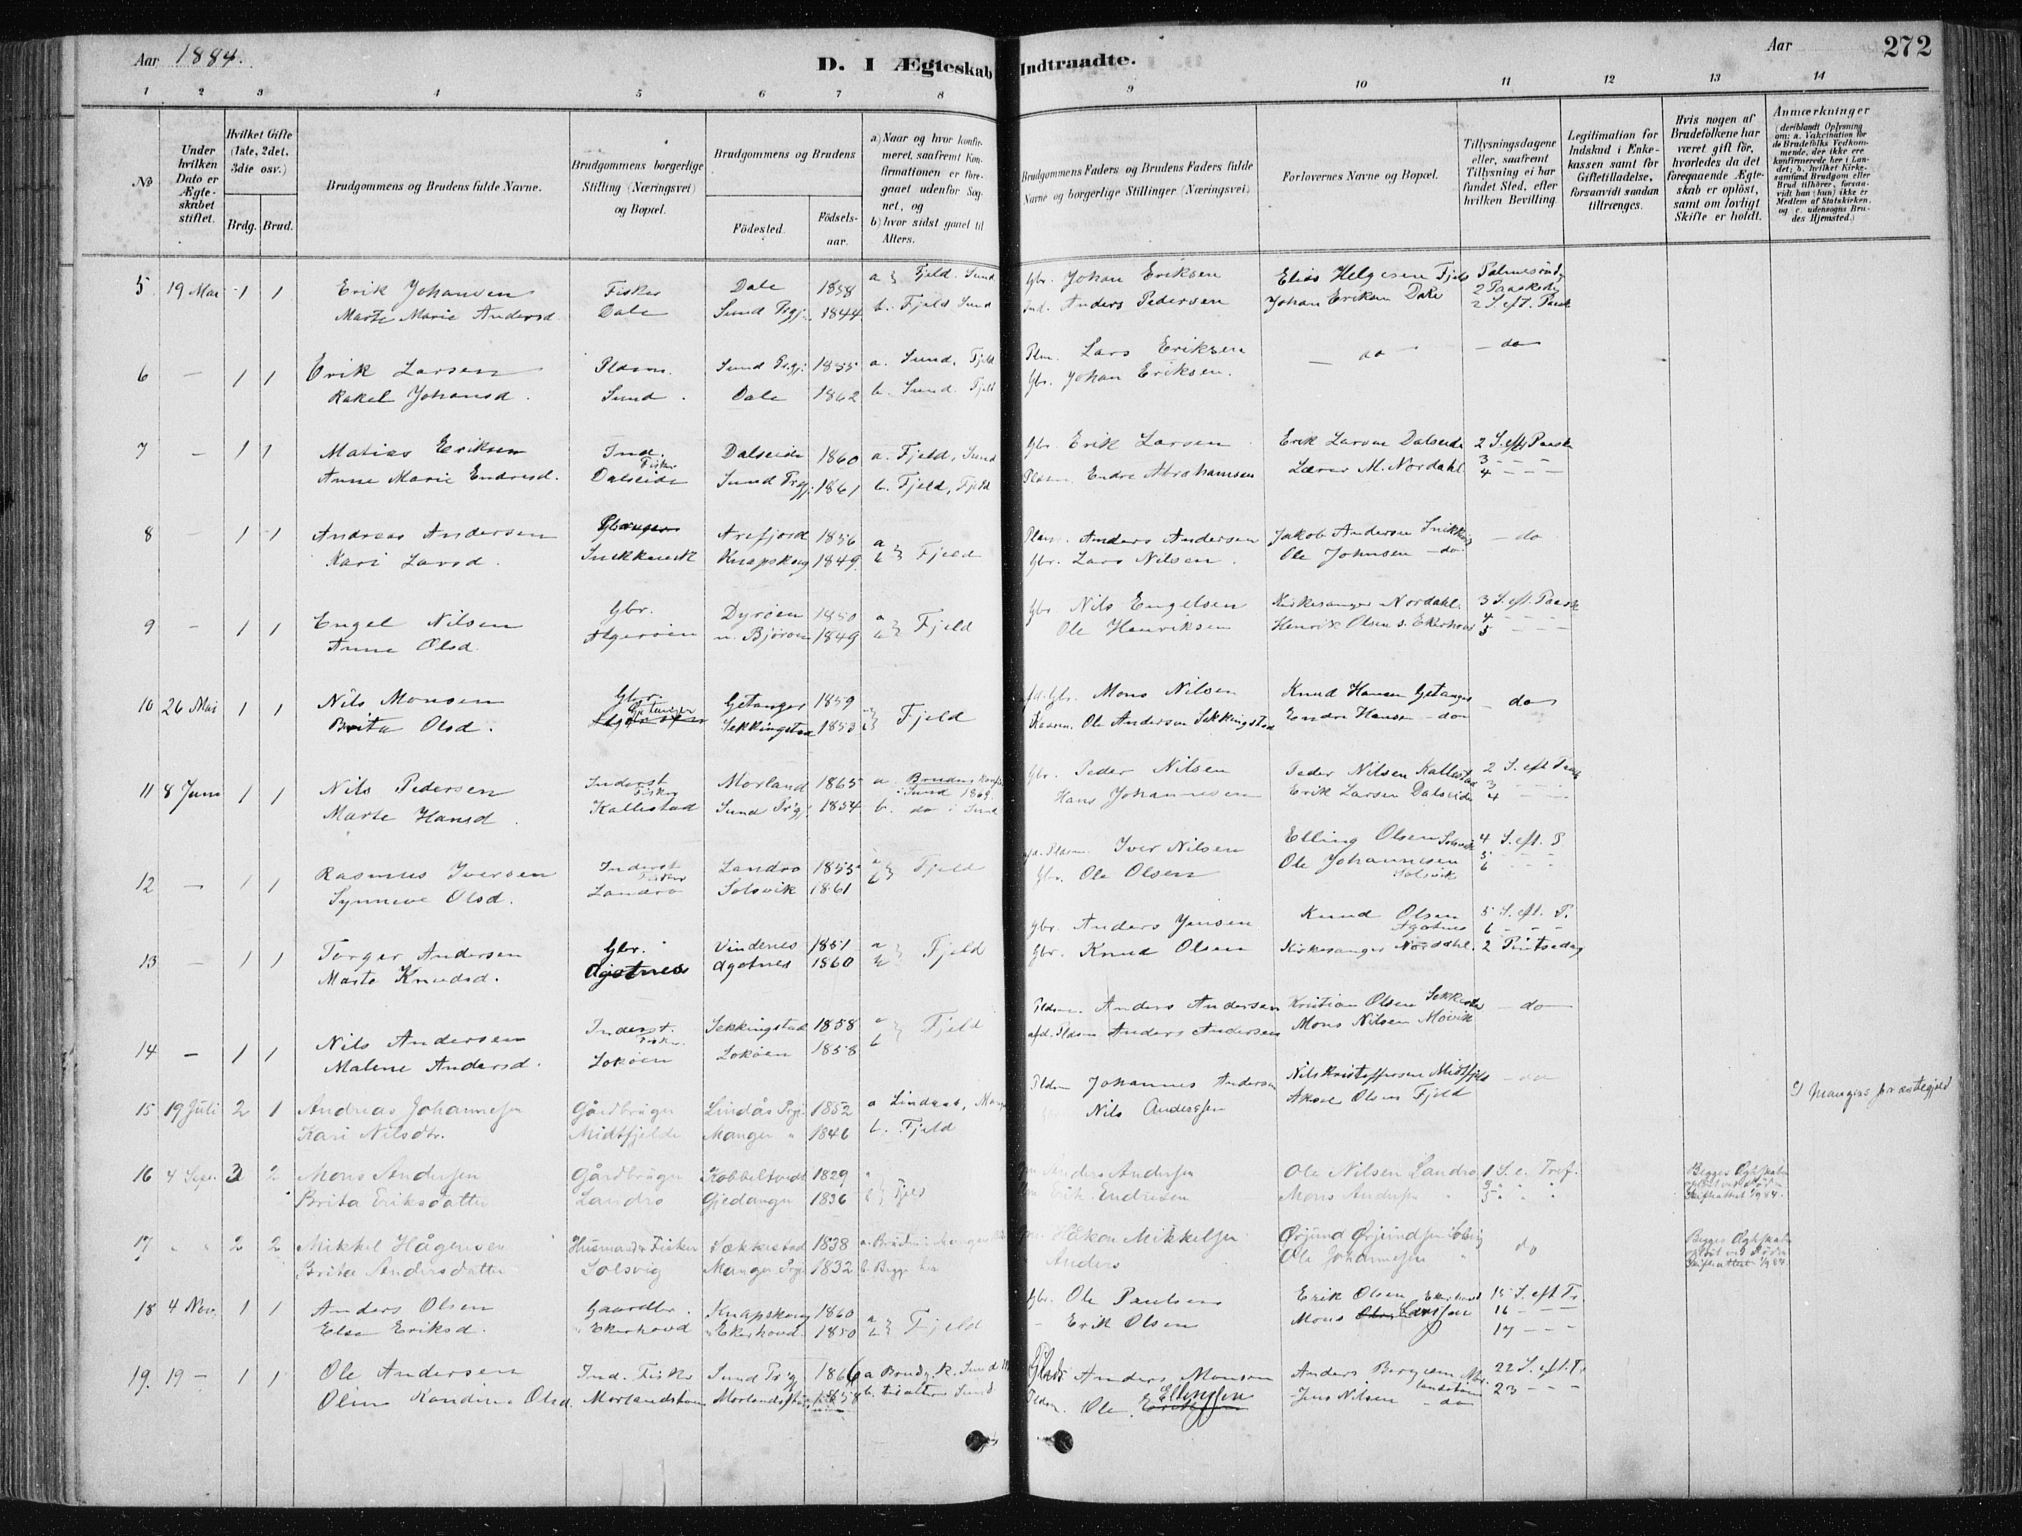 Aar 1884.
D. I Ægteskab Indtraadte.
Aar
272
1 2 3 4 5 6 7 8 9 10 11 12 13 14
No
Under hvilken Dato er Ægteskabet stiftet.
Hvilket Gifte (1ste, 2det, 3die osv.)
Brdg. Brud.
Brudgommens og Brudens fulde Navne.
Brudgommens borgerlige Stilling (Næringsvei) og Bopæl.
Brudgommens og Brudens
Födested. Födselsaar.
a) Naar og hvor konfirmeret, saafremt Konfirmationen er foregaaet udenfor Sognet, og
b) hvor sidst gaaet til Alters.
Brudgommens Faders og Brudens Faders fulde Navne og borgerlige Stillinger (Næringsvei)
Forlovernes Navne og Bopæl.
Tillysningsdagene eller, saafremt Tillysning ei har fundet Sted, efter hvilken Bevilling.
Legitimation for Indskud i Enkekassen samt for Giftetilladelse, forsaavidt saadan tiltrænges.
Hvis nogen af Brudefolkene har været gift för, hvorledes da det foregaaende Ægteskab er oplöst, samt om lovligt Skifte er holdt.
Anmærkninger
(deriblandt Oplysning om: a. Vakcination for de Brudefolks Vedkommende, der ikke ere konfirmerede her i Landet; b. hvilket Kirkesamfund Brudgom eller Brud tilhörer, forsaavidt han (hun) ikke er Medlem af Statskirken, og c. udensogns Brudes Hjemsted.)
5 19 Mai 1 1 Erik Johansen Fisker Dale 1858 a Fjeld. Sund Gbr. Johan Eriksen Elias Helgesen Fjeld Palmesönd.
Marte Marie Andersd Dale Sund Prgj. 1844 b. Fjeld Sund Ind. Anders Pedersen Johan Eriksen Dale 2 Paaskedg
2 S. eft. Paask
6 - 1 1 Erik Larsen Pldsm. Sund Prgj. 1855 a. Sund, Fjeld Plm. Lars Eriksen - do - do
Rakel Johansd. Sund. Dale 1862 b. Sund. Fjeld Gbr. Johan Eriksen.
7 - 1 1 Matias Eriksen Ind. Fisker Dalseide 1860 a. Fjeld, Sund Gbr. Erik Larsen Erik Larsen Dalseide 2 S. eft Paask
Anne Marie Endresd. Dalseide Sund Prgj. 1861 b. Fjeld, Fjeld Pldsm. Endre Abrahamsen Lærer M. Nordahl 3 - - -
4 - - -
8 - 1 1 Andreas Andersen Arefjord 1856 a Plsm. Anders Andersen Jakob Andersen - do
Kari Larsd. Knapskog 1849. b Fjeld Gbr. Lars Nilsen. Ole Johnsen - do
9 - 1 1 Engel Nilsen Gbr. Dyröen 1850 a Gbr Nils Engelsen Kirkesanger Nordahl. 3 S. eft. Paask
Anne Olsd. Algeröen n. Björöen 1849 b Fjeld Ole Henriksen Henrik Olsen s. Ekerhovd 4 - - -
5 - - -
10 26 Mai 1 1 Nils Monsen Gbr. Getanger Getanger 1859 fd. Gbr. Mons Nilsen Knud Hansen Getanger - do
Brita Olsd. Sekkingstad 1853 Fjeld Ole Andersen Sekkingstad Endre Hansen - do
11 8 Juni 1 1 Nils Pedersen Inderst Fisker Morland 1865 a. Bruden konf. i Sund 1869. Gbr. Peder Nilsen Peder Nilsen Kallestad 2 S. eft Paask
Marte Hansd. Kallestad Sund Prgj. 1854 b. do i Sund Hans Johannesen Erik Larsen Dalseide 3 - - -
4 - - -
12 - 1 1 Rasmus Iversen Inderst Fisker Landro 1855 a afd. Pldsm. Iver Nilsen Elling Olsen Solsvik 4 S. eft. P
Synneve Olsd. Landro Solsvik 1861 b Fjeld Gbr. Ole Olsen Ole Johannesen Solsvik 5
6
13 - 1 1 Torger Andersen Gbr. Vindenes 1851 a Gbr. Anders Jensen Knud Olsen Agotnes 5 S. eft. P.
Marta Knudsd. Agotnes Agotnes 1860 b Fjeld Gbr. Knud Olsen Kirkesanger Nordahl. 6
2 Pintsedag
14 - 1 1 Nils Andersen Inderst. Fisker Sekkingstad 1858 a Pldsm. Anders Andersen Kristian Olsen - do
Malene Andersd. Loköen Loköen 1858 b Fjeld afd. Pldsm Anders Andersen Mons Nilsen Movik
15 19 Juli 2 1 Andreas Johannesen Gårdbruger Lindås Prgj 1852 a Lindaas, Manger Pldsm Johannes Andersen Nils Kristoffersen Midtfjeld - do
Kari Nilsdtr. Midtfjelde Manger " 1846 b. Fjeld Nils Anderssen Aksel Olsen Fjeld
Mangers præstegjeld
16 4 Sept. 3 2 Mons Andersen Gårdbruger Kobbeltvedt 1829 Anders Andersen Ole Nilsen Landro 1 S. e. Tref.
Brita Eriksdatter Landro Gjedanger 1836 Fjeld Erik Endresen Mons Andersen " 3
5
Begges Ægteskab oplöst ved Döden Skifteattest
17 " " 2 2 Mikkel Hågensen Husmand & Fisker Sækkestad 1838 Håkon Mikkelsen Örjund Örjundsen Solsvig do
Brita Andersdatter Solsvig Manger Prgj 1832 b. Begge her Anders Ole Johannesen "
Begges Ægteskab oplöst ved Döden Skifteattest
18 4 Nov. 1 1 Anders Olsen Gaardbr. Knapskog 1860 a Gbr. Ole Paulsen Erik Olsen Ekerhovd 15 S. eft Tr.
Else Eriksd. " Ekerhovd " Ekerhovd. 1850 b Fjeld - Erik Olsen Mons Larssen 16 - - -
17 - - -
19. 19 - 1 1 Ole Andersen Ind. Fisker Sund Prgj 1866 a Brudg. k. Sund Anders Monsen Anders Börgesen 22 S. eft. Tr
Oline Kandine Olsd. Morlandstöen 1858 b. Sund. Pldsm. Ole Ellingsen Jens Nilsen - do 23 - - -